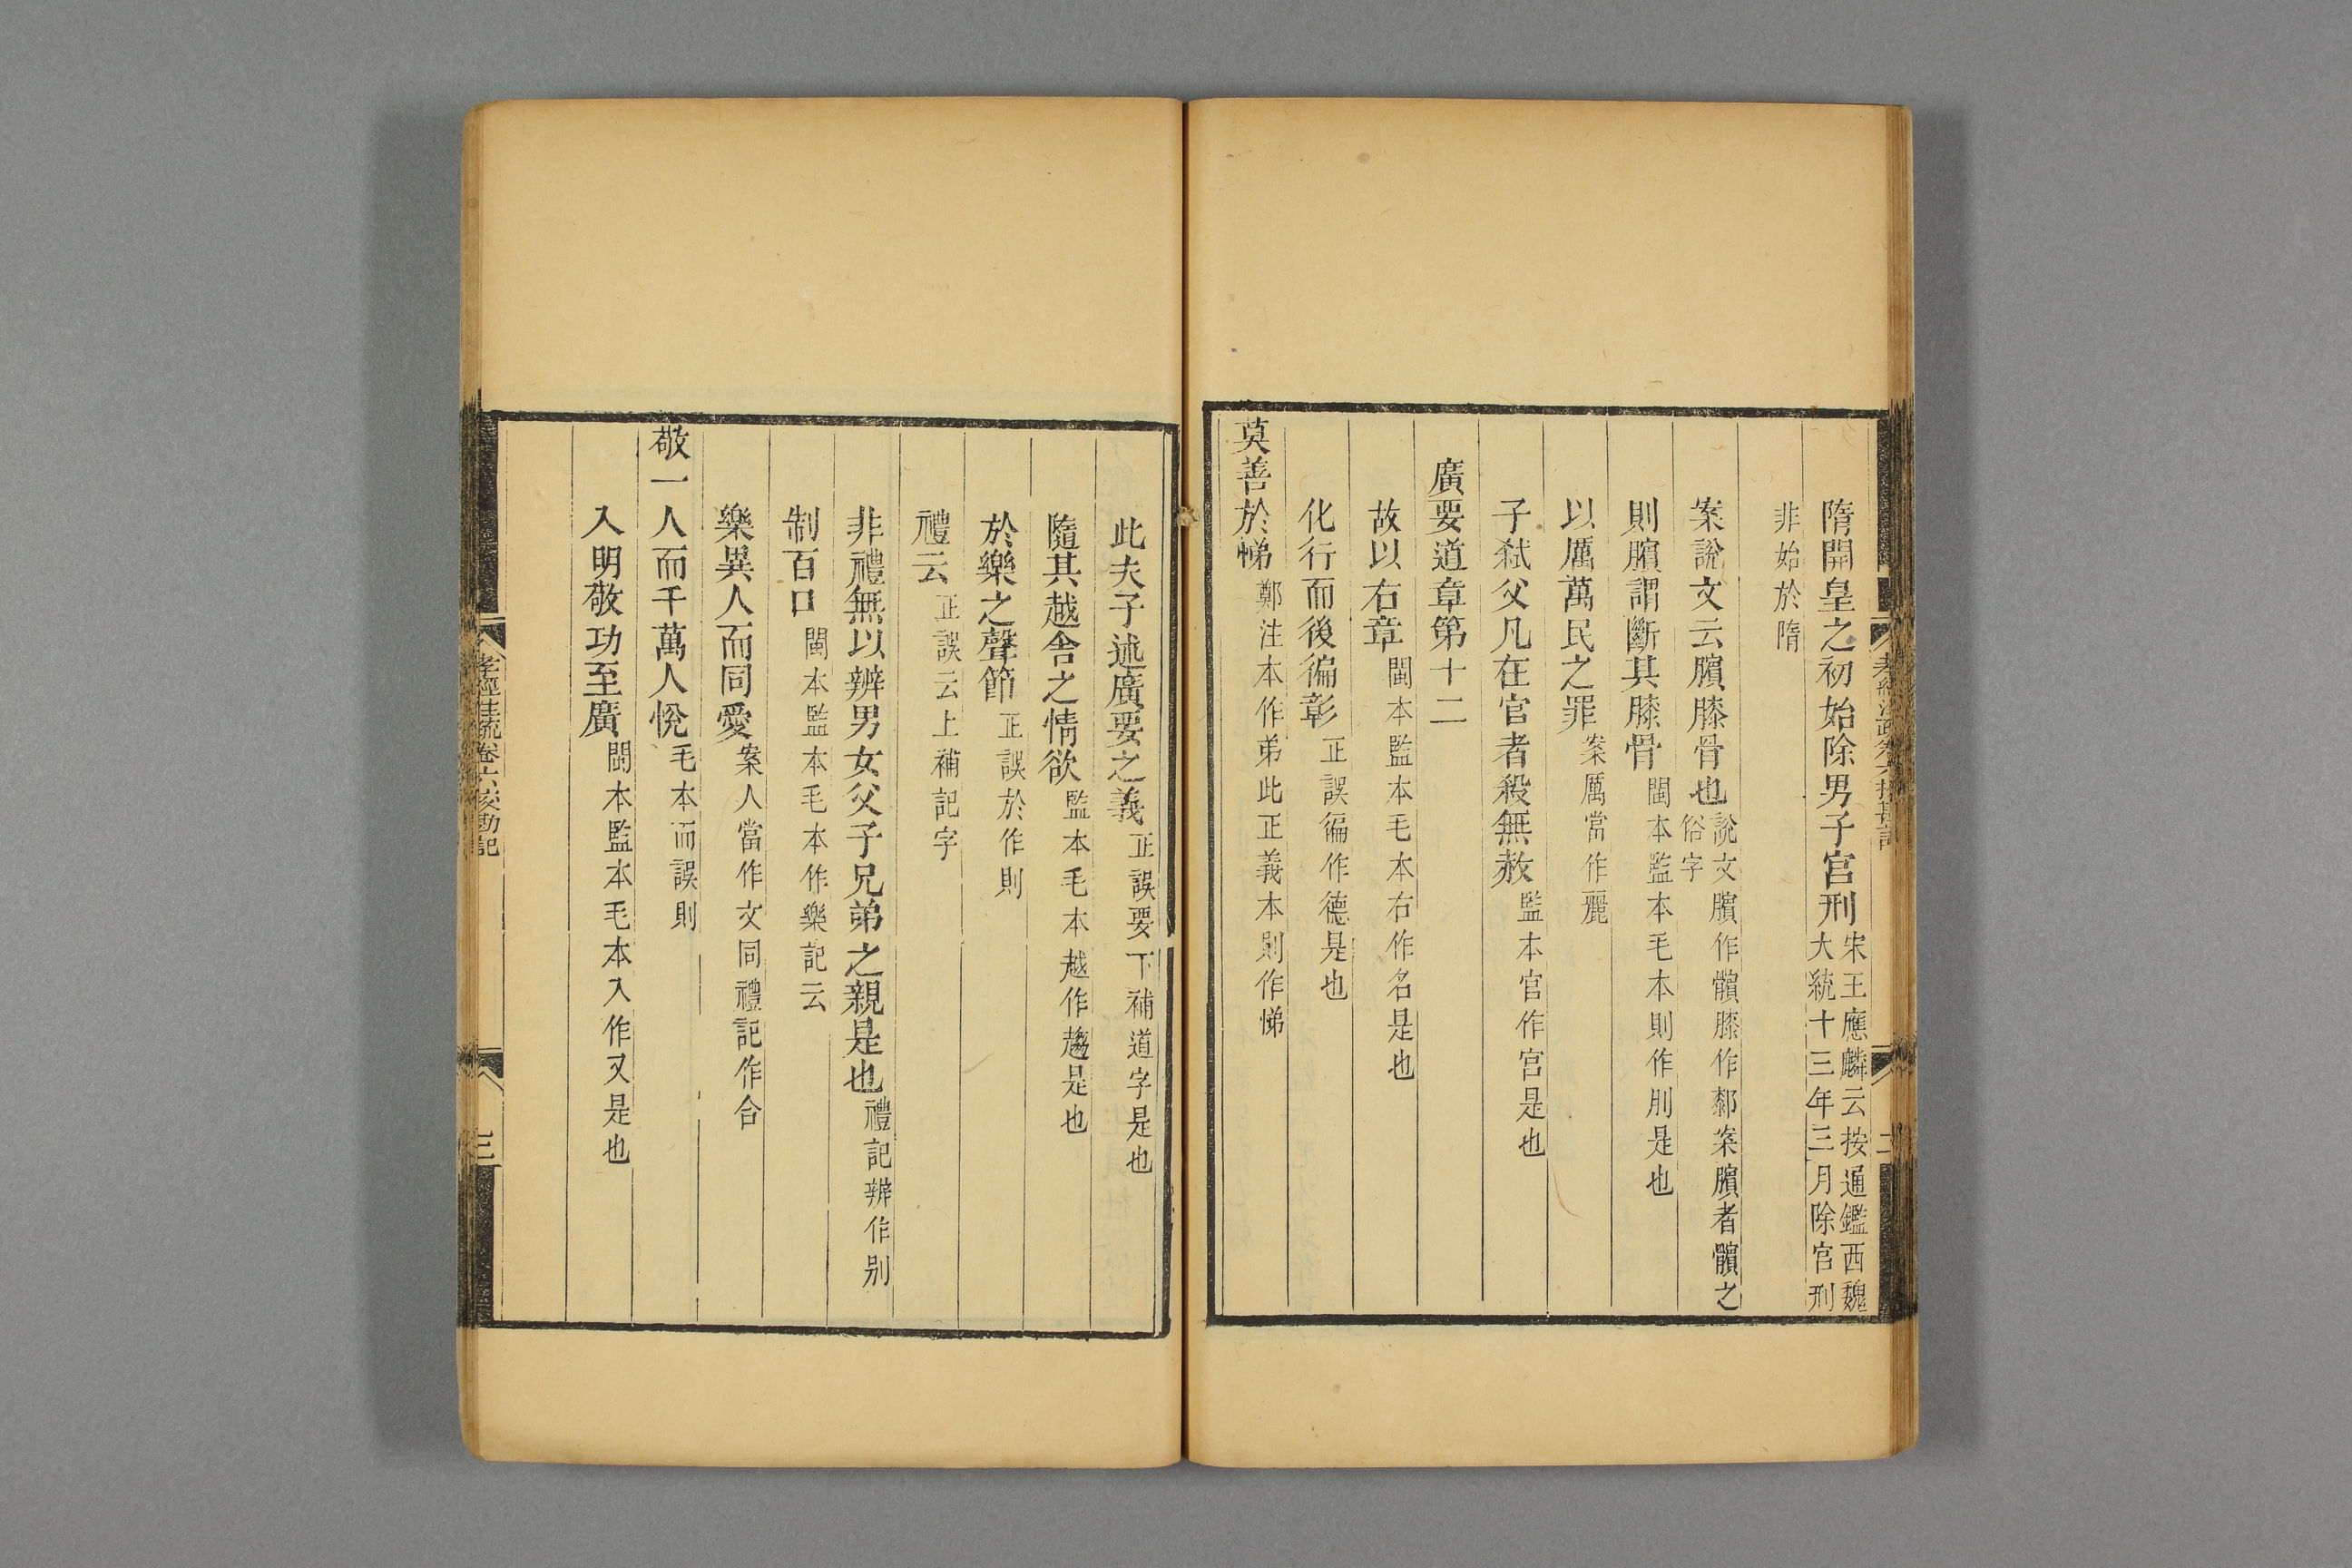 隋開皇之初始除男子宮刑宋王應麟云按通鑑西魏大統十三年三月除宮刑
非始於隋
案說文云臏膝骨也說文臏作髕膝作厀案臏者髕之俗字
則臏謂斷其膝骨閩本監本毛本則作刖是也
以厲萬民之罪案厲當作麗
子弒父凡在官者殺無赦監本官作宮是也
廣要道章第十二
故以右章閩本監本毛本右作名是也
化行而後徧彰正誤徧作德是也
莫善於悌鄭注本作弟此正義本則作悌
此夫子述廣要之義正誤要下補道字是也
隨其越舍之情欲監本毛本越作趨是也
於樂之聲節正誤於作則
禮云正誤云上補記字
非禮無以辨男女父子兄弟之親是也禮記辨作别
制百口閩本監本毛本作樂記云
樂異人而同愛案人當作文同禮記作合
敬一人而千萬人悅毛本而誤則
入明敬功至廣閩本監本毛本入作又是也
孝經注疏卷六挍勘記
三